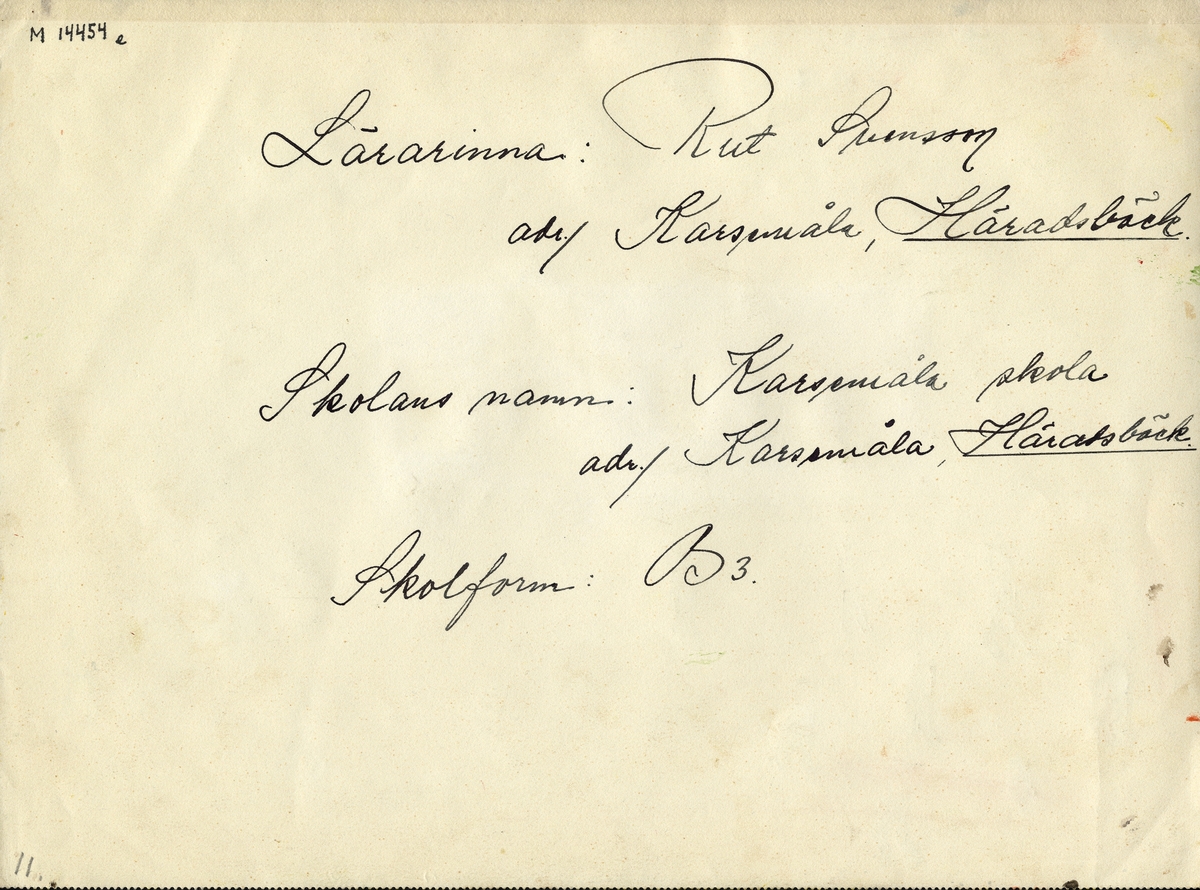 M 14454 e
Lärarinna: Rut Svensson
adr./ Karsemåla, Häradsbäck.
Skolans namn: Karsemåla skola
adr./ Karsemåla, Häradsbäck.
Skolform: B 3.
11.